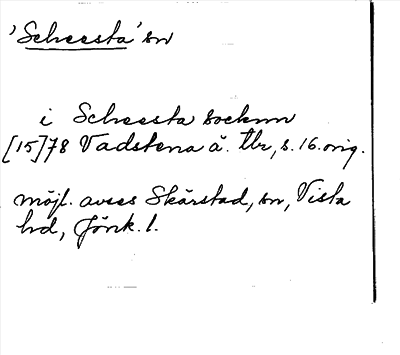 'Scheesta' sn
i Scheesta socknn
[15]78 Vadstena ä. tbr, s. 16. orig.
möjl. avses Skärstad, sn, Vista
hd, Jönk. l.